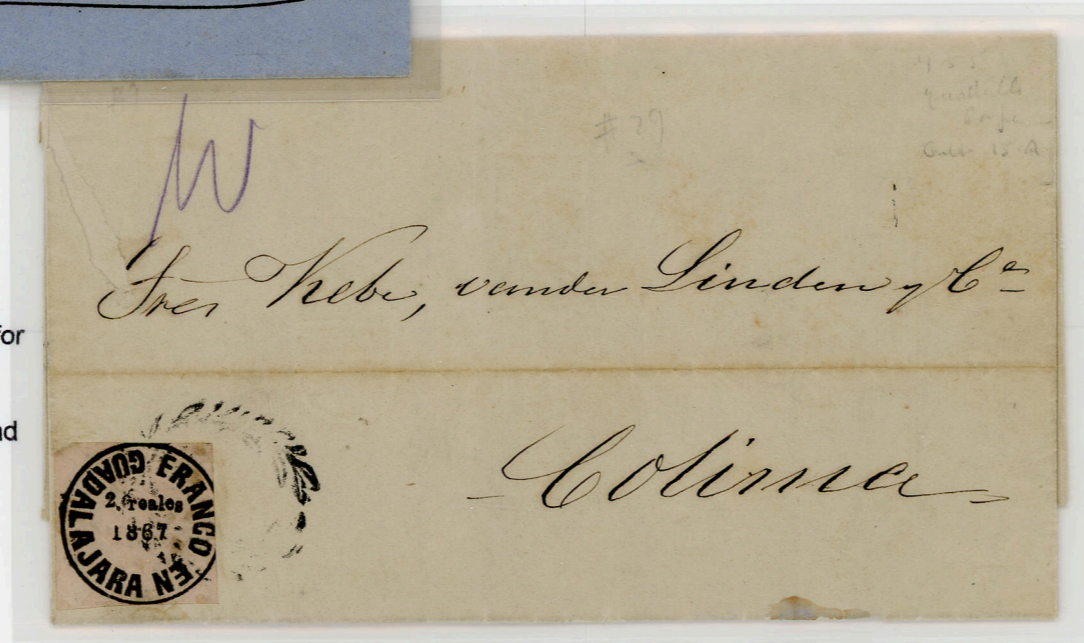 or
# 29
Sres Kebe, vander Linden y Ca
nd
Colima
FRANCO EN GUADALAJARA
2 reales
1867